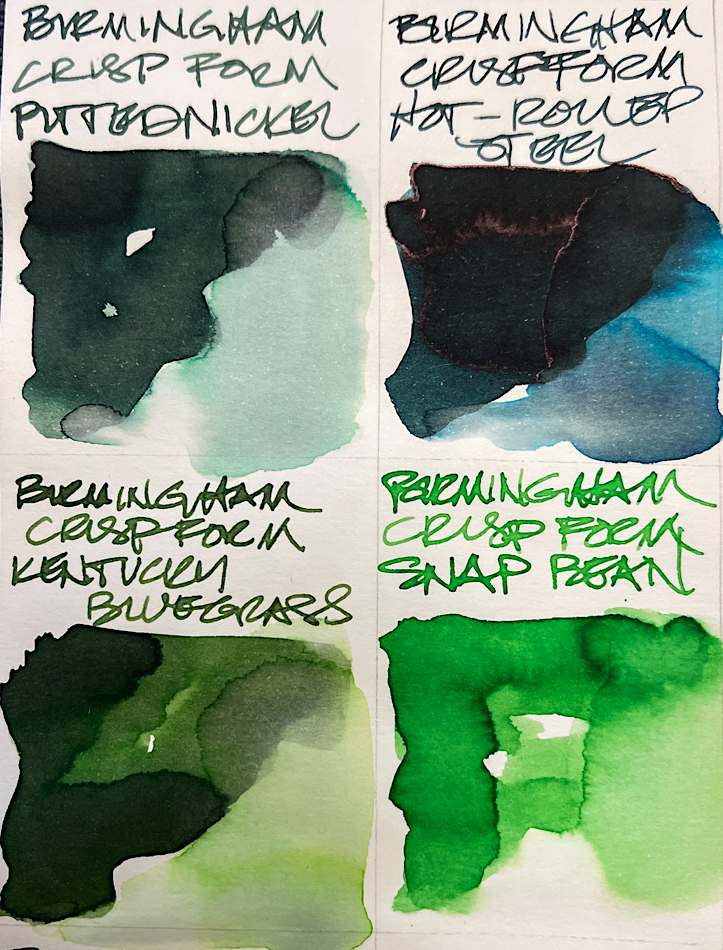 BIRMINGHAM
CRISP FORM
PITTED NICKEL
BIRMINGHAM
CRISP FORM
HOT-ROLLED
STEEL
BIRMINGHAM
CRISP FORM
KENTUCKY
BLUEGRASS
BIRMINGHAM
CRISP FORM
SNAP BEAN